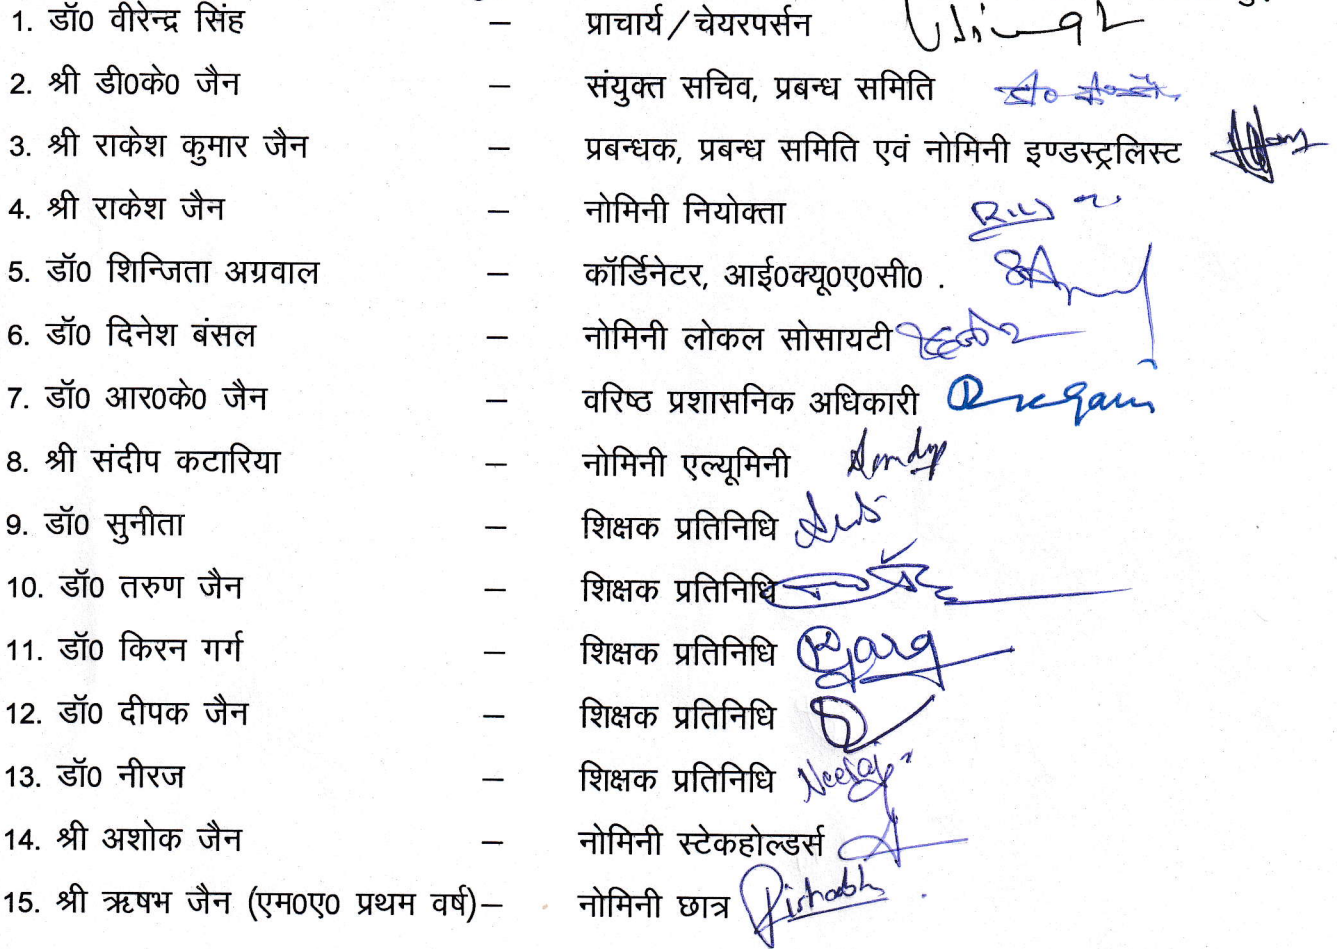 1. डॉ0 वीरेन्द्र सिंह – प्राचार्य/चेयरपर्सन
2. श्री डी0के0 जैन – संयुक्त सचिव, प्रबन्ध समिति
3. श्री राकेश कुमार जैन – प्रबन्धक, प्रबन्ध समिति एवं नोमिनी इण्डस्ट्रलिस्ट
4. श्री राकेश जैन – नोमिनी नियोक्ता
5. डॉ0 शिन्जिता अग्रवाल – कॉर्डिनेटर, आई0क्यू0ए0सी0 .
6. डॉ0 दिनेश बंसल – नोमिनी लोकल सोसायटी
7. डॉ0 आर0के0 जैन – वरिष्ठ प्रशासनिक अधिकारी
8. श्री संदीप कटारिया – नोमिनी एल्यूमिनी
9. डॉ0 सुनीता – शिक्षक प्रतिनिधि
10. डॉ0 तरुण जैन – शिक्षक प्रतिनिधि
11. डॉ0 किरन गर्ग – शिक्षक प्रतिनिधि Rgarg
12. डॉ0 दीपक जैन – शिक्षक प्रतिनिधि
13. डॉ0 नीरज – शिक्षक प्रतिनिधि Neeraj
14. श्री अशोक जैन – नोमिनी स्टेकहोल्डर्स
15. श्री ऋषभ जैन (एम0ए0 प्रथम वर्ष) – नोमिनी छात्र Rishabh